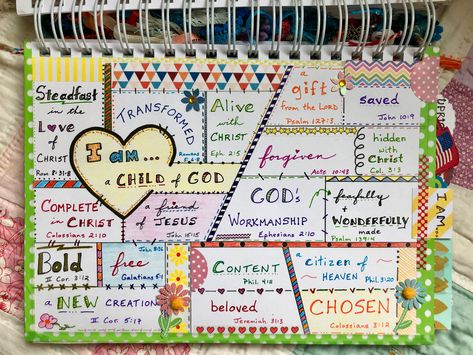 Steadfast
in the
Love
of
CHRIST
Rom. 8:31-8
TRANSFORMED
Alive
with
CHRIST
Eph. 2:5
a gift
from the LORD
Psalm 127:3
saved
John 10:9
I am...
a CHILD of GOD
forgiven
Acts 10:43
hidden
with
Christ
Col. 3:3
COMPLETE
in CHRIST
Colossians 2:10
a friend
of JESUS
John 15:15
GOD's
WORKMANSHIP
Ephesians 2:10
fearfully
+ WONDERFULLY
made
Psalm 139:14
Bold
II Cor. 3:12
John 8:36
free
Galatians 5:1
CONTENT
Phil. 4:12
a citizen of
HEAVEN Phil. 3:20
a NEW CREATION
II Cor. 5:17
beloved
Jeremiah 31:3
CHOSEN
Colossians 3:12
I AM...